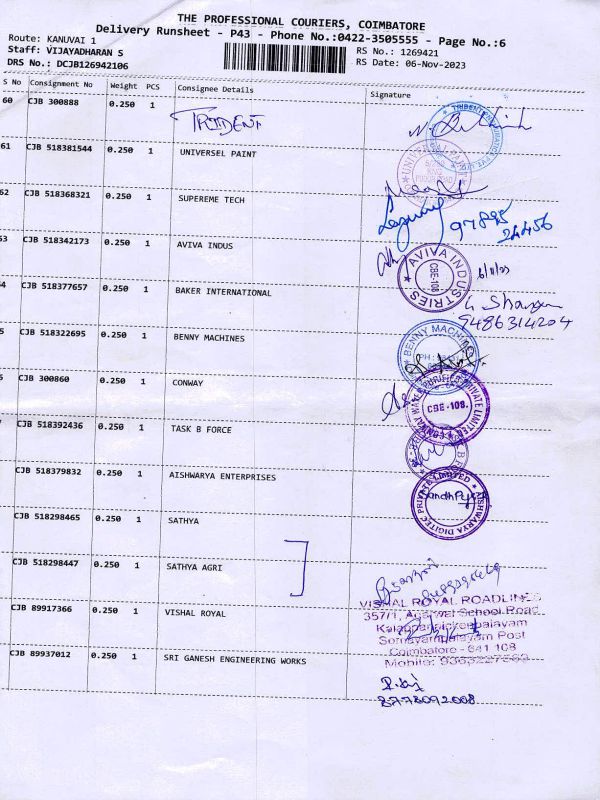 THE PROFESSIONAL COURIERS, COIMBATORE
Delivery Runsheet - P43 - Phone No.:0422-3505555 - Page No.:6
Route: KANUVAI 1
Staff: VIJAYADHARAN S
RS No.: 1269421
DRS No.: DCJB126942106
RS Date: 06-Nov-2023
S No Consignment No Weight PCS Consignee Details Signature
60 CJB 300888 0.250 1
TRIDENT
61 CJB 518381544 0.250 1 UNIVERSEL PAINT
62 CJB 518368321 0.250 1 SUPEREME TECH
97895
24456
53 CJB 518342173 0.250 1 AVIVA INDUS
AVIVA INDUSTRIES
CBE-108
6/11/23
4 CJB 518377657 0.250 1 BAKER INTERNATIONAL
9486314204
5 CJB 518322695 0.250 1 BENNY MACHINES
BENNY MACHINES
CJB 300860 0.250 1 CONWAY
CBE-108.
CJB 518392436 0.250 1 TASK B FORCE
CJB 518379832 0.250 1 AISHWARYA ENTERPRISES
AISHWARYA DIGITEC PRIVATE LIMITED
CJB 518298465 0.250 1 SATHYA
CJB 518298447 0.250 1 SATHYA AGRI
CJB 89917366 0.250 1 VISHAL ROYAL
VISHAL ROYAL ROADLINES
357/1, Agarwal School Road
Kalappanaickenpalayam
Somayampalayam Post
Coimbatore - 641 108
Mobile:
CJB 89937012 0.250 1 SRI GANESH ENGINEERING WORKS
8778092008